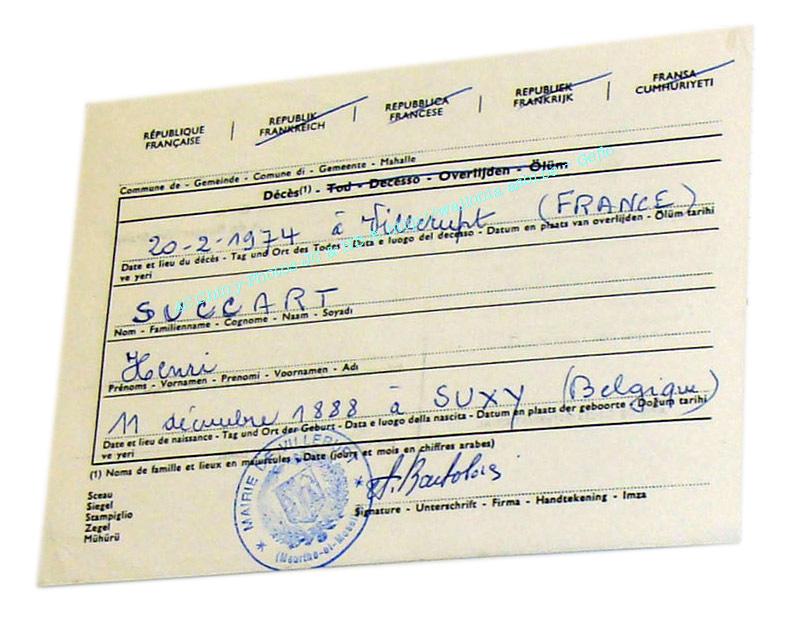 RÉPUBLIQUE FRANÇAISE | REPUBLIK FRANKREICH | REPUBBLICA FRANCESE | REPUBLIEK FRANKRIJK | FRANSA CUMHURIYETI
Commune de - Gemeinde - Comune di - Gemeente - Mahalle
Décès(1) - Tod - Decesso - Overlijden - Ölüm
20-2-1974 à Villerupt (FRANCE)
Date et lieu du décès - Tag und Ort des Todes - Data e luogo del decesso - Datum en plaats van overlijden - Ölüm tarihi
ve yeri
SUCCART
Nom - Familienname - Cognome - Naam - Soyadı
Henri
Prénoms - Vornamen - Prenomi - Voornamen - Adı
11 décembre 1888 à SUXY (Belgique)
Date et lieu de naissance - Tag und Ort der Geburt - Data e luogo della nascita - Datum en plaats der geboorte - Doğum tarihi
ve yeri
(1) Noms de famille et lieux en majuscules - Date (jours et mois en chiffres arabes)
Sceau
Siegel
Stampiglio
Zegel
Mühürü
MAIRIE DE VILLERUPT
(Meurthe-et-Moselle)
Signature - Unterschrift - Firma - Handtekening - Imza